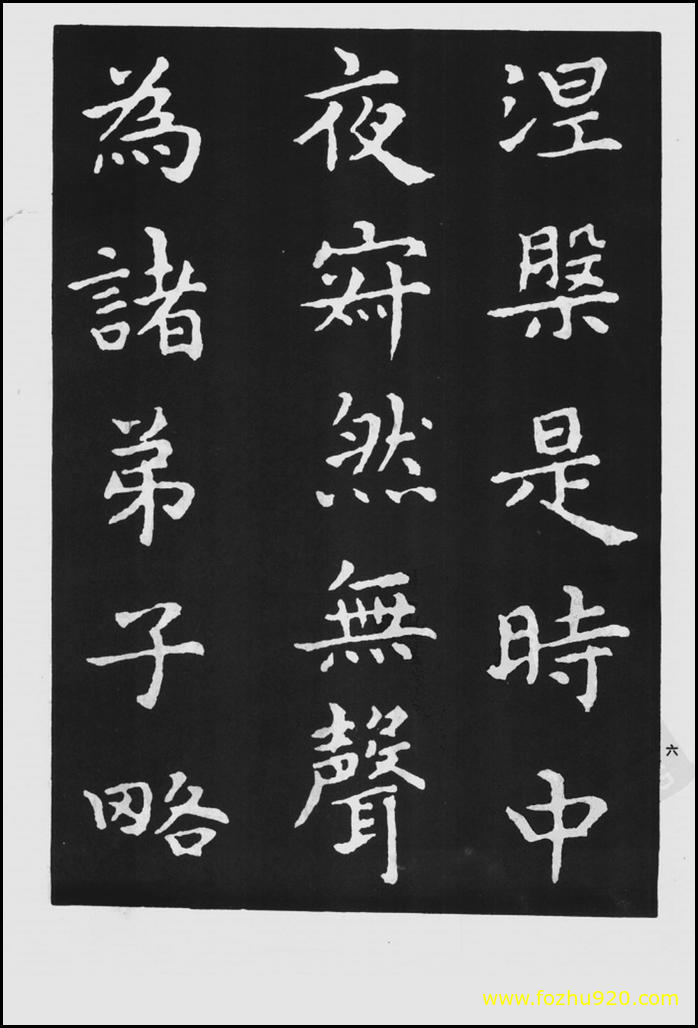 涅槃是時中
夜寂然無聲
為諸弟子略
六
www.fozhu920.com